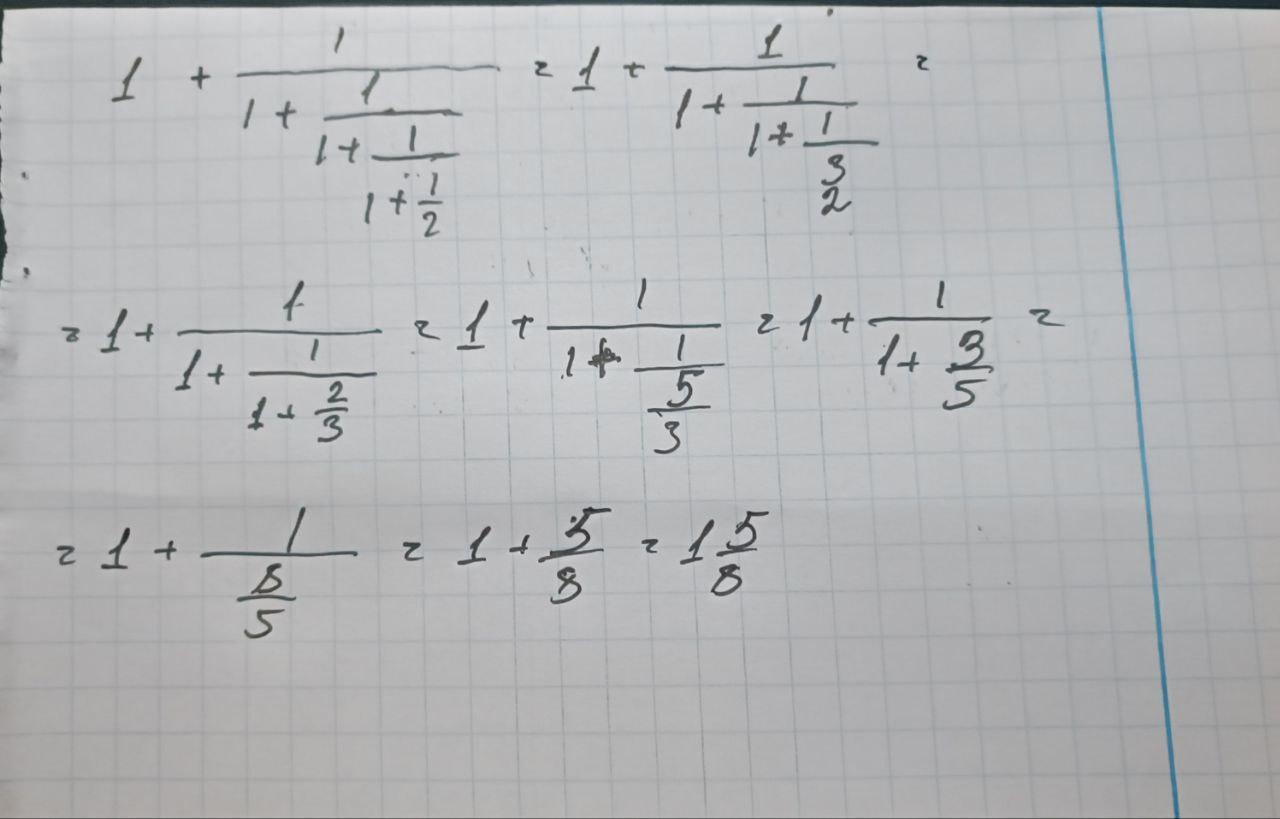 1 + 1/(1 + 1/(1 + 1/(1 + 1/2))) = 1 + 1/(1 + 1/(1 + 1/(3/2))) =
= 1 + 1/(1 + 1/(1 + 2/3)) = 1 + 1/(1 + 1/(5/3)) = 1 + 1/(1 + 3/5) =
= 1 + 1/(8/5) = 1 + 5/8 = 1 5/8